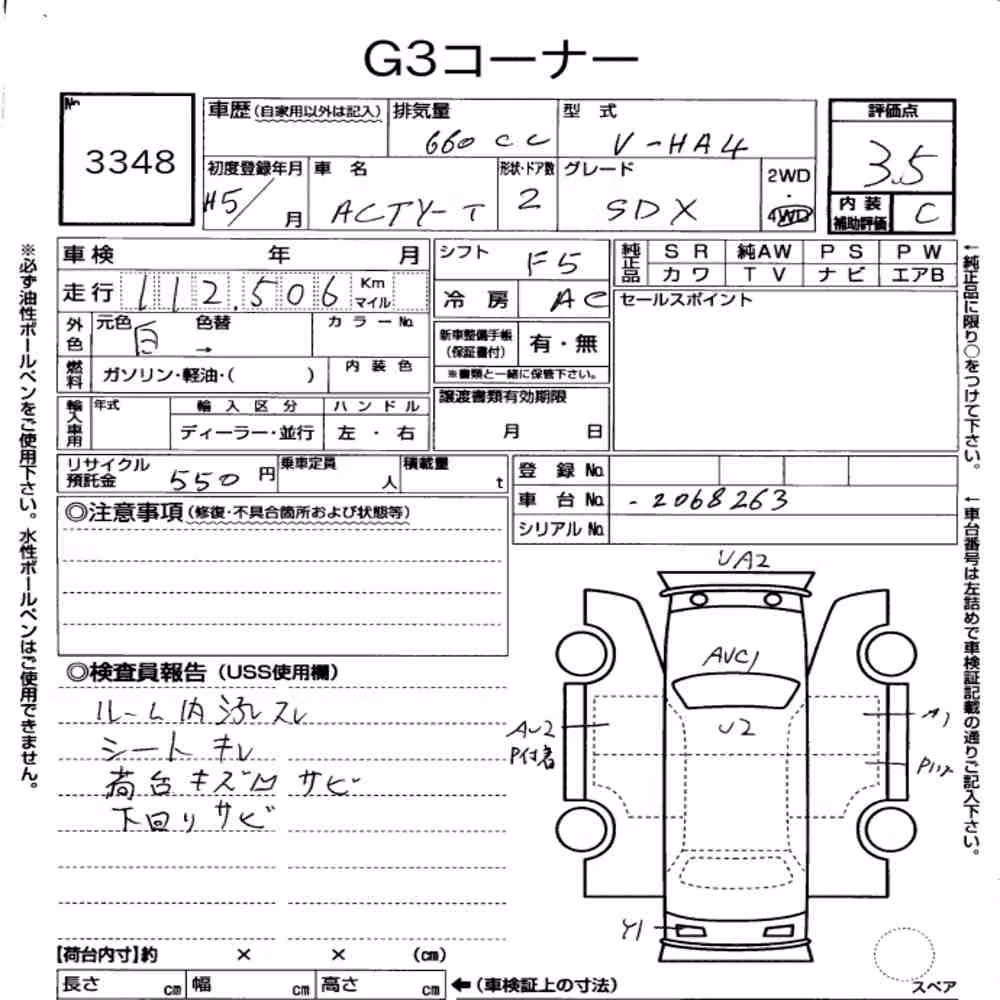 G3コーナー
No
3348
車歴(自家用以外は記入)
排気量
660 cc
型 式
V-HA4
評価点
3.5
初度登録年月
H5/ 月
車 名
ACTY-T
形状・ドア数
2
グレード
SDX
2WD
・
4WD
内 装
補助評価
C
車検 年 月
シフト
F5
純正品
SR 純AW PS PW
カワ TV ナビ エアB
走行 112.506 Km
マイル
冷 房
AC
セールスポイント
外色
元色 白
色替
→
カラーNo.
新車整備手帳
(保証書付)
有・無
※書類と一緒に保管下さい。
燃料
ガソリン・軽油・( )
内装色
輸入車用
年式
輸入区分
ハンドル
ディーラー・並行
左・右
譲渡書類有効期限
月 日
リサイクル
預託金
550 円
乗車定員
人
積載量
t
登 録 No.
車 台 No. -2068263
シリアル No.
◎注意事項(修復・不具合箇所および状態等)
◎検査員報告(USS使用欄)
ルーム内 汚レ スレ
シート キレ
荷台キズ凹 サビ
下回りサビ
UA2
AUC1
U2
AU2
P付着
A1
Y1
スペア
【荷台内寸】約 × × (cm)
長さ cm 幅 cm 高さ cm
←(車検証上の寸法)
※必ず油性ボールペンをご使用下さい。水性ボールペンはご使用できません。
←純正品に限り○をつけて下さい。
←車台番号は左詰めで車検証記載の通りご記入下さい。